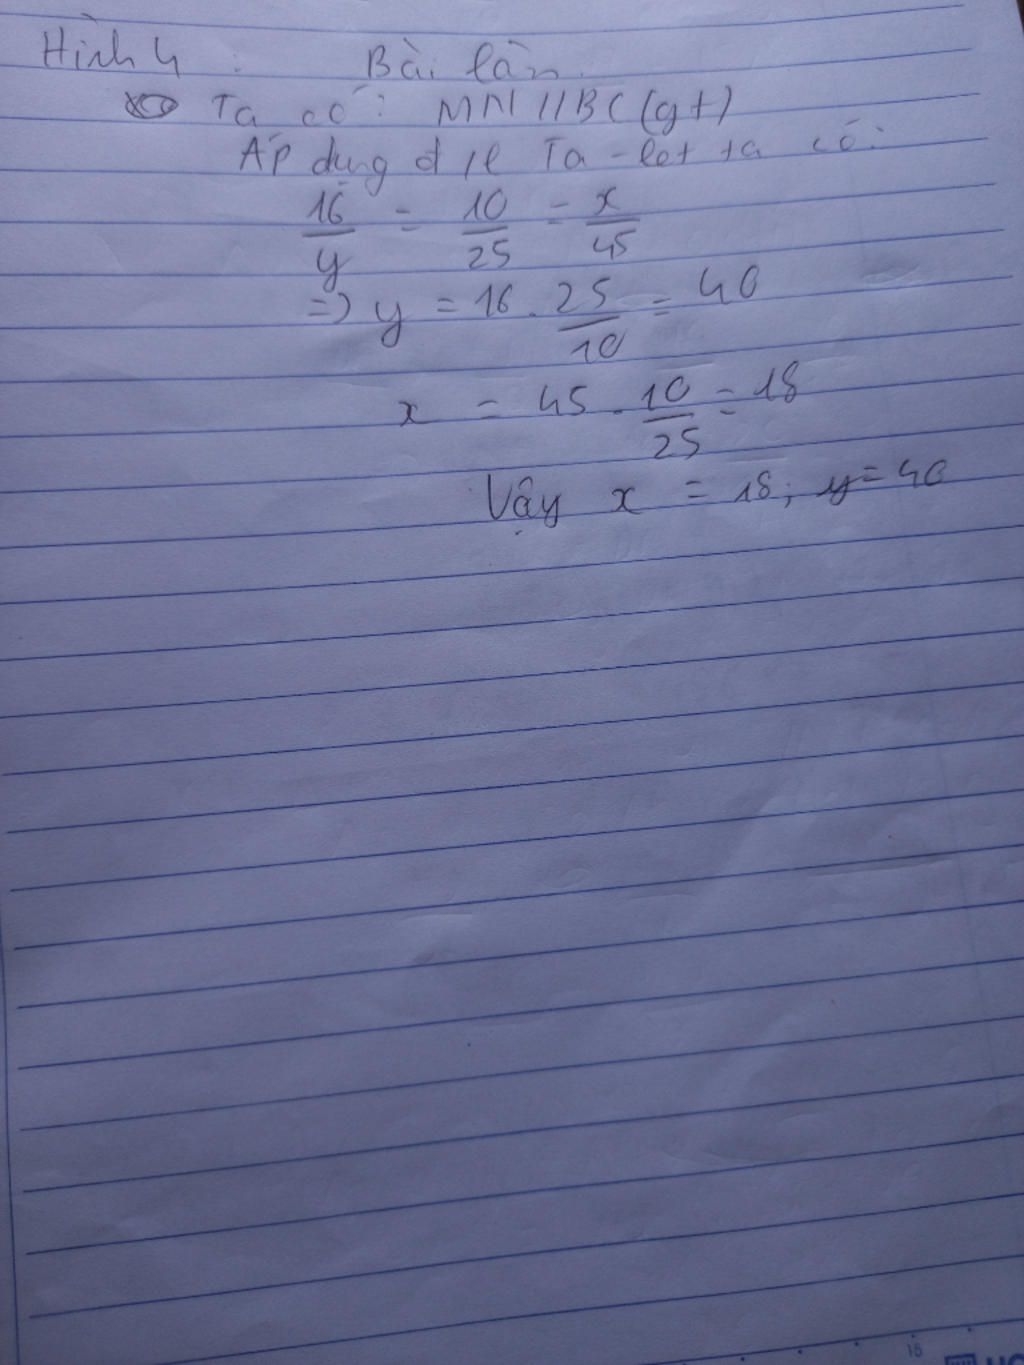 Hình 4 : Bài làn.
Ta có: MN // BC (gt)
ÁP dụng đ/l Ta-let ta có:
16/y = 10/25 = x/45
=> y = 16 . 25/10 = 40
x = 45 . 10/25 = 18
Vậy x = 18; y = 40
18